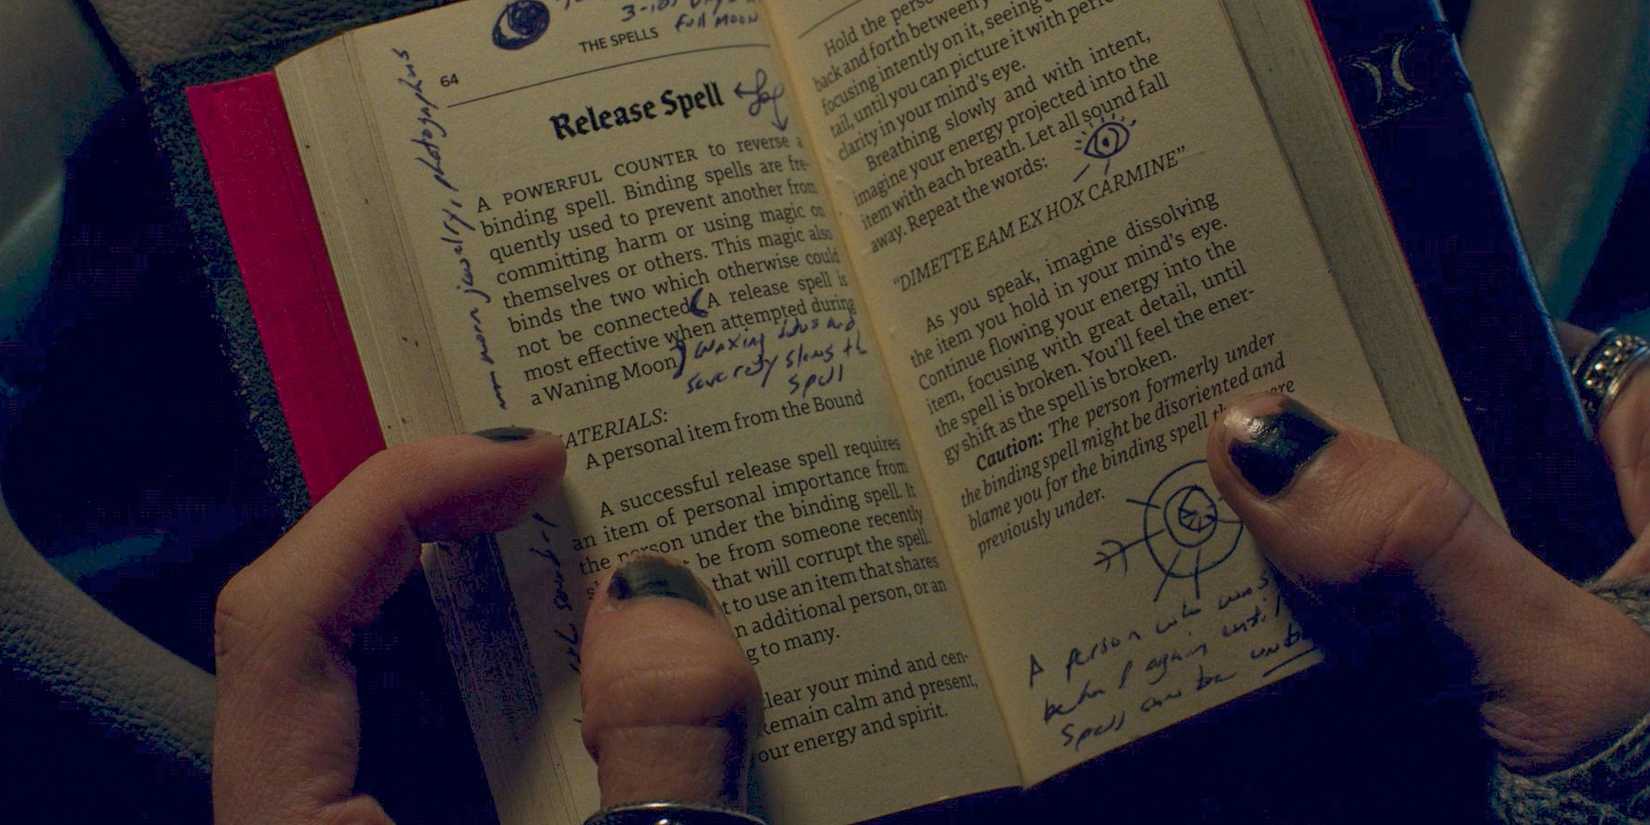 3-
full moon
THE SPELLS
64
Release Spell
A POWERFUL COUNTER to reverse a
binding spell. Binding spells are fre-
quently used to prevent another from
committing harm or using magic on
themselves or others. This magic also
binds the two which otherwise could
not be connected. A release spell is
most effective when attempted during
a Waning Moon.
waxing
severely slows th
spell
new moon
MATERIALS:
A personal item from the Bound
A successful release spell requires
an item of personal importance from
the person under the binding spell. It
be from someone recently
that will corrupt the spell.
to use an item that shares
additional person, or an
to many.
clear your mind and cen-
Remain calm and present,
your energy and spirit.
Hold the
back and forth between
focusing intently on it, seeing
tail, until you can picture it with
clarity in your mind's eye.
Breathing slowly and with intent,
imagine your energy projected into the
item with each breath. Let all sound fall
away. Repeat the words:
"DIMETTE EAM EX HOX CARMINE"
As you speak, imagine dissolving
the item you hold in your mind's eye.
Continue flowing your energy into the
item, focusing with great detail, until
the spell is broken. You'll feel the ener-
gy shift as the spell is broken.
Caution: The person formerly under
the binding spell might be disoriented and
blame you for the binding spell
previously under.
A person who was
again until
spell can be